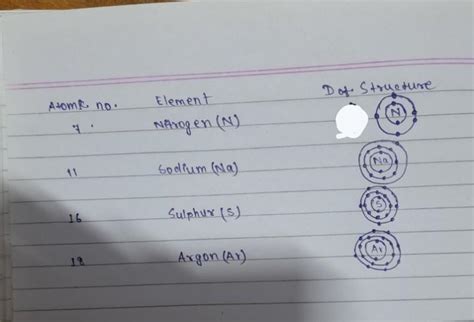 Atomic no. Element Dot Structure
7. Nitrogen (N) N
11 Sodium (Na) Na
16 Sulphur (S) S
18 Argon (Ar) Ar